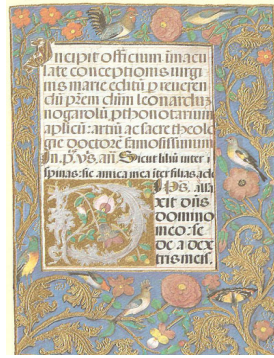 Incipit officium imacu
late conceptionis virgi
nis marie editū p reueren
dū p̄rem dn̄m leonardū
nogarolū prothonotariū
apl̄icū: artiū ac sacre theolo
gie doctorē famosissimum
In p̄. vs̄. an̄. Sicut liliū inter
spinas: sic amica mea īter filias ade
ps. dix
xit dn̄s
domino
meo: se
de a dex
tris meis.